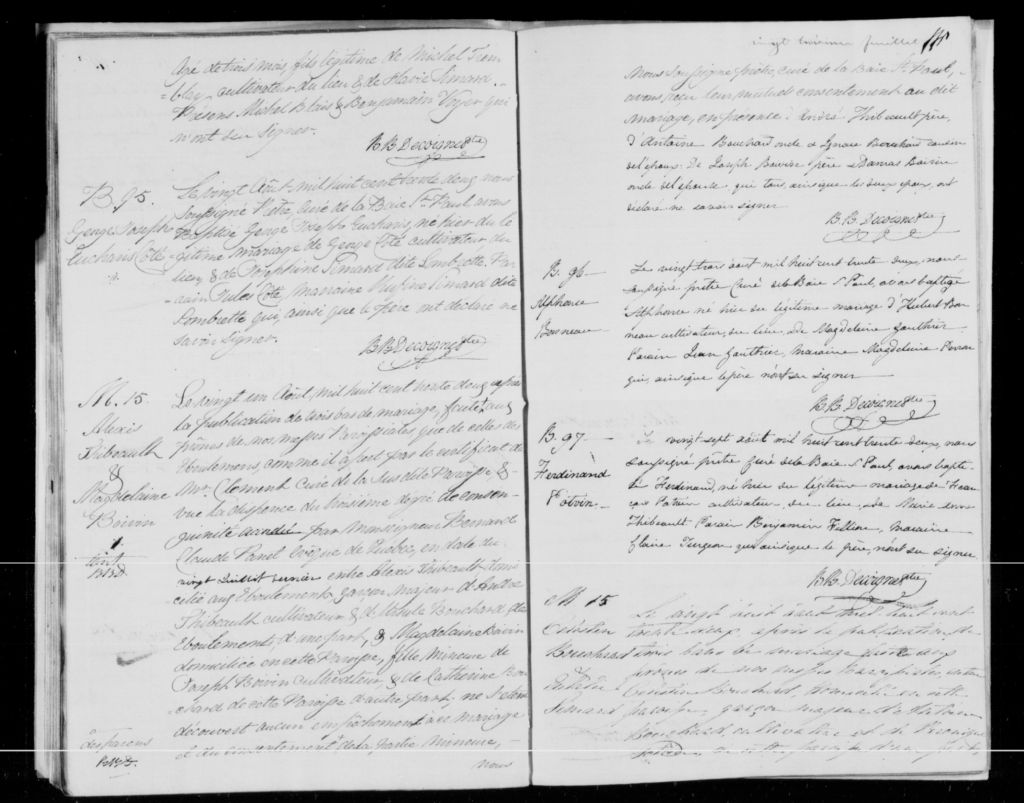 Agé de trois mois, fils légitime de Michel Trem-
=blay cultivateur du lieu & de Flavie Simard.
Présens Michel Blais & Benjamain Voyer qui
n'ont su signer.
B.B. Decoigne Ptre
B. 95.
George Joseph
Eucharis Côté
Le vingt Août mil huit cent trente deux nous
soussigné Prêtre, curé de la Baie St Paul avons
baptisé George Joseph Eucharis, né hier du lé
=gitime mariage de George Côté cultivateur du
lieu, & de Simard dite Lombrette. Par-
rain Jules Côté, marraine Simard dite
Lombrette qui, ainsi que le père ont déclaré ne
savoir signer.
B.B. Decoigne Ptre
M. 15
Alexis
Thibeault
&
Magdelaine
Boivin
Le vingt un Août, mil huit cent trente deux après
la publication de trois bans de mariage, faite aux
prônes de nos messes Paroissiales que de celles des
Eboulemens, comme il appert par le certificat de
Mr. Clement Curé de la susdite Paroisse, &
vue la dispence du troisième degré de consan-
guinité par Monseigneur Bernard
Claude Panet Evêque de Quebec, en date du
vingt Juillet dernier entre Alexis Thibeault domi
cilié aux Eboulemens garçon majeur d'André
Thibeault cultivateur & d'Ursule Bouchard des
Eboulemens, d'une part, & Magdelaine Boivin
domiciliée en cette Paroisse, fille mineure de
Joseph Boivin cultivateur & de Catherine Bou
chard de cette Paroisse d'autre part; ne s'étant
découvert aucun empêchement au mariage
et du consentement de la partie mineure,
des parens
nous
vingt troisieme feuillet
Nous soussigné prêtre, curé de la Baie St. Paul,
avons reçu leur mutuel consentement au dit
mariage, en presence d'André Thibeault père,
d'Antoine Bouchard oncle & Ignace Bouchard cousin
de l'époux: De Joseph Boivin père & Damas Boivin
oncle de l'épouse, qui tous, ainsi que les deux époux, ont
déclaré ne savoir signer
B.B. Decoigne Ptre
B. 96
Alphonse
Bonneau
Le vingt trois aout mil huit cent trente deux, nous
soussigné prêtre Curé de la Baie St Paul, avons baptisé
Alphonse né hier du légitime mariage d'Hubert Bon
neau cultivateur, du lieu, & de Magdeleine Gauthier
Parain Jean Gauthier, maraine Magdeleine
qui, ainsi que le père n'ont su signer
B.B. Decoigne Ptre
B. 97
Ferdinand
Potvin
Le vingt sept aout mil huit cent trente deux, nous
soussigné prêtre Curé de la Baie St Paul, avons bapti-
sé Ferdinand, né hier du légitime mariage de Fran
çois Potvin cultivateur, du lieu, & de Marie
Thibeault Parain Benjamin Fillion, maraine
Claire Turgeon qui ainsi que le père, n'ont su signer
B.B. Decoigne Ptre
M 15
Célestin
Bouchard
Simard
Le vingt huit aout mil huit cent
trente deux, après la publication de
trois bans de mariage faite aux
prônes de nos messes paroissiales entre
Célestin Bouchard, domicilié en cette
paroisse, garçon majeur d'Antoine
Bouchard, cultivateur et de Véronique
de cette paroisse d'une part